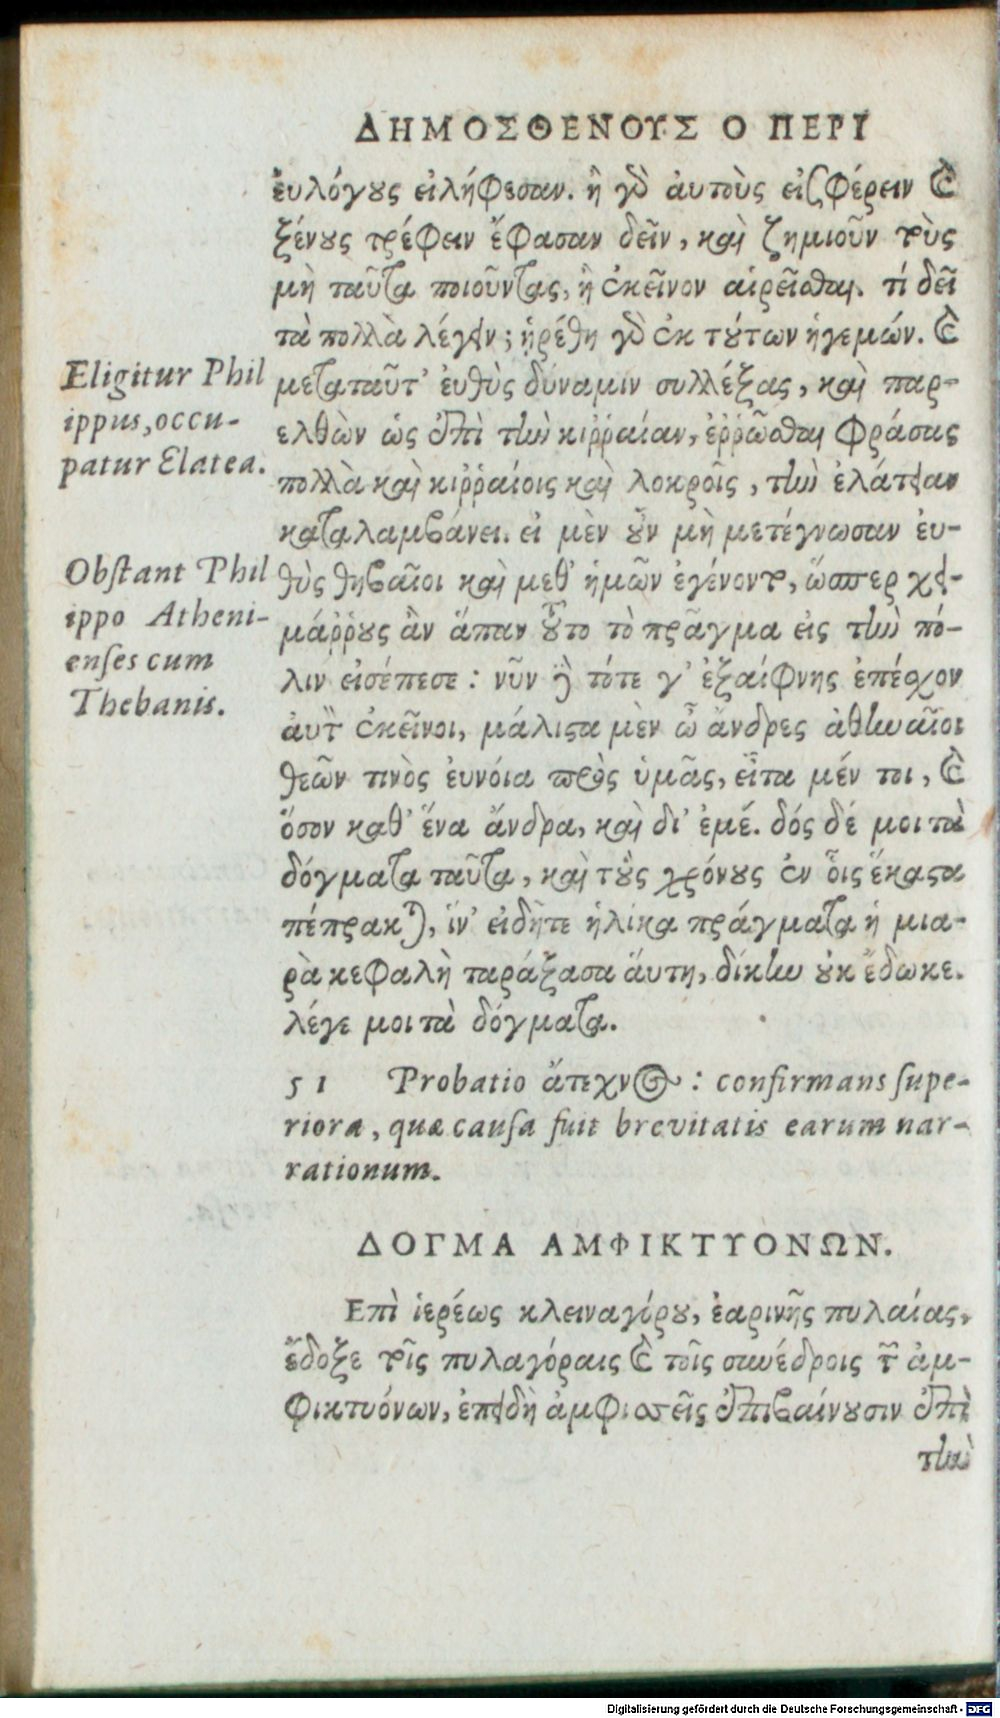 ΔΗΜΟΣΘΕΝΟΥΣ Ο ΠΕΡΙ
ἐυλόγους εἰλήφεσαν. ἢ γὰρ ἀυτοὺς εἰσφέρειν καὶ
ξένους τρέφειν ἔφασαν δεῖν, καὶ ζημιοῦν τοὺς
μὴ ταῦτα ποιοῦντας, ἢ ἐκεῖνον αἱρεῖσθαι. τί δεῖ
τὰ πολλὰ λέγειν; ᾑρέθη γὰρ ἐκ τούτων ἡγεμών. καὶ
μεταταῦτ' ἐυθὺς δύναμιν συλλέξας, καὶ παρ-
ελθὼν ὡς ἐπὶ τὴν κιῤῥαίαν, ἐῤῥῶσθαι φράσας
πολλὰ καὶ κιῤῥαίοις καὶ λοκροῖς, τὴν ἐλάτειαν
καταλαμβάνει. εἰ μὲν οὖν μὴ μετέγνωσαν ἐυ-
θὺς θηβαῖοι καὶ μεθ' ἡμῶν ἐγένοντο, ὥσπερ χει-
μάῤῥους ἂν ἅπαν τοῦτο τὸ πρᾶγμα εἰς τὴν πό-
λιν εἰσέπεσε: νῦν δὲ τότε γ' ἐξαίφνης ἐπέσχον
ἀυτὸν ἐκεῖνοι, μάλιστα μὲν ὦ ἄνδρες ἀθηναῖοι
θεῶν τινὸς ἐυνοία πρὸς ὑμᾶς, εἶτα μέν τοι, καὶ
ὅσον καθ' ἕνα ἄνδρα, καὶ δι' ἐμέ. δός δέ μοι τὰ
δόγματα ταῦτα, καὶ τοὺς χρόνους ἐν οἷς ἕκαστα
πέπρακται, ἵν' εἰδῆτε ἡλίκα πράγματα ἡ μια-
ρὰ κεφαλὴ ταράξασα ἅυτη, δίκην οὐκ ἔδωκε.
λέγε μοι τὰ δόγματα.
Eligitur Phil
ippus, occu-
patur Elatea.
Obstant Phil
ippo Atheni-
enses cum
Thebanis.
51 Probatio ἄτεχνος: confirmans supe-
riora, quæ causa fuit brevitatis earum nar-
rationum.
ΔΟΓΜΑ ΑΜΦΙΚΤΥΟΝΩΝ.
Επὶ ἱερέως κλειναγόρου, ἐαρινῆς πυλαίας,
ἔδοξε τοῖς πυλαγόραις καὶ τοῖς συνέδροις τῶν ἀμ-
φικτυόνων, ἐπειδὴ ἀμφισσεῖς ἐπιβαίνουσιν ἐπὶ
τὴν
Digitalisierung gefördert durch die Deutsche Forschungsgemeinschaft - DFG